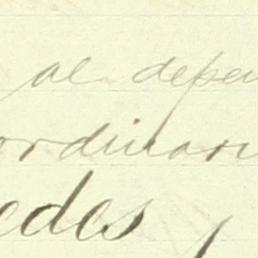 al depen
ordinari
edes